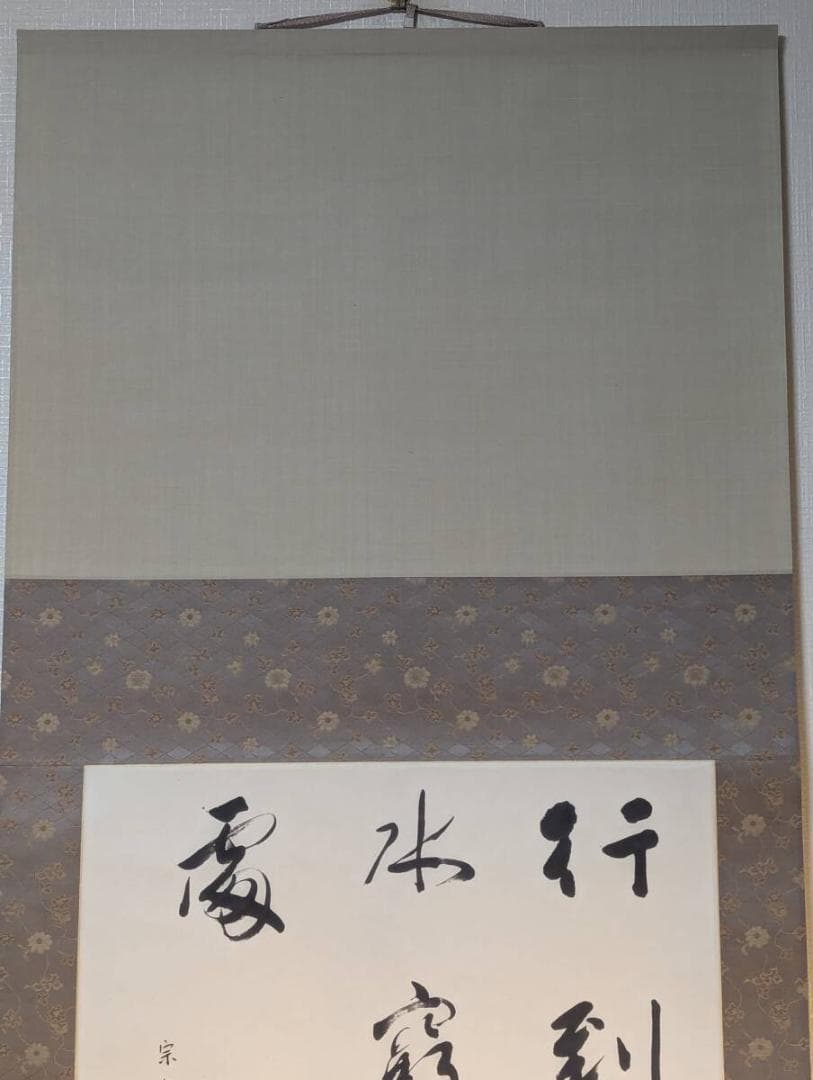 行到
水窮
處
宗